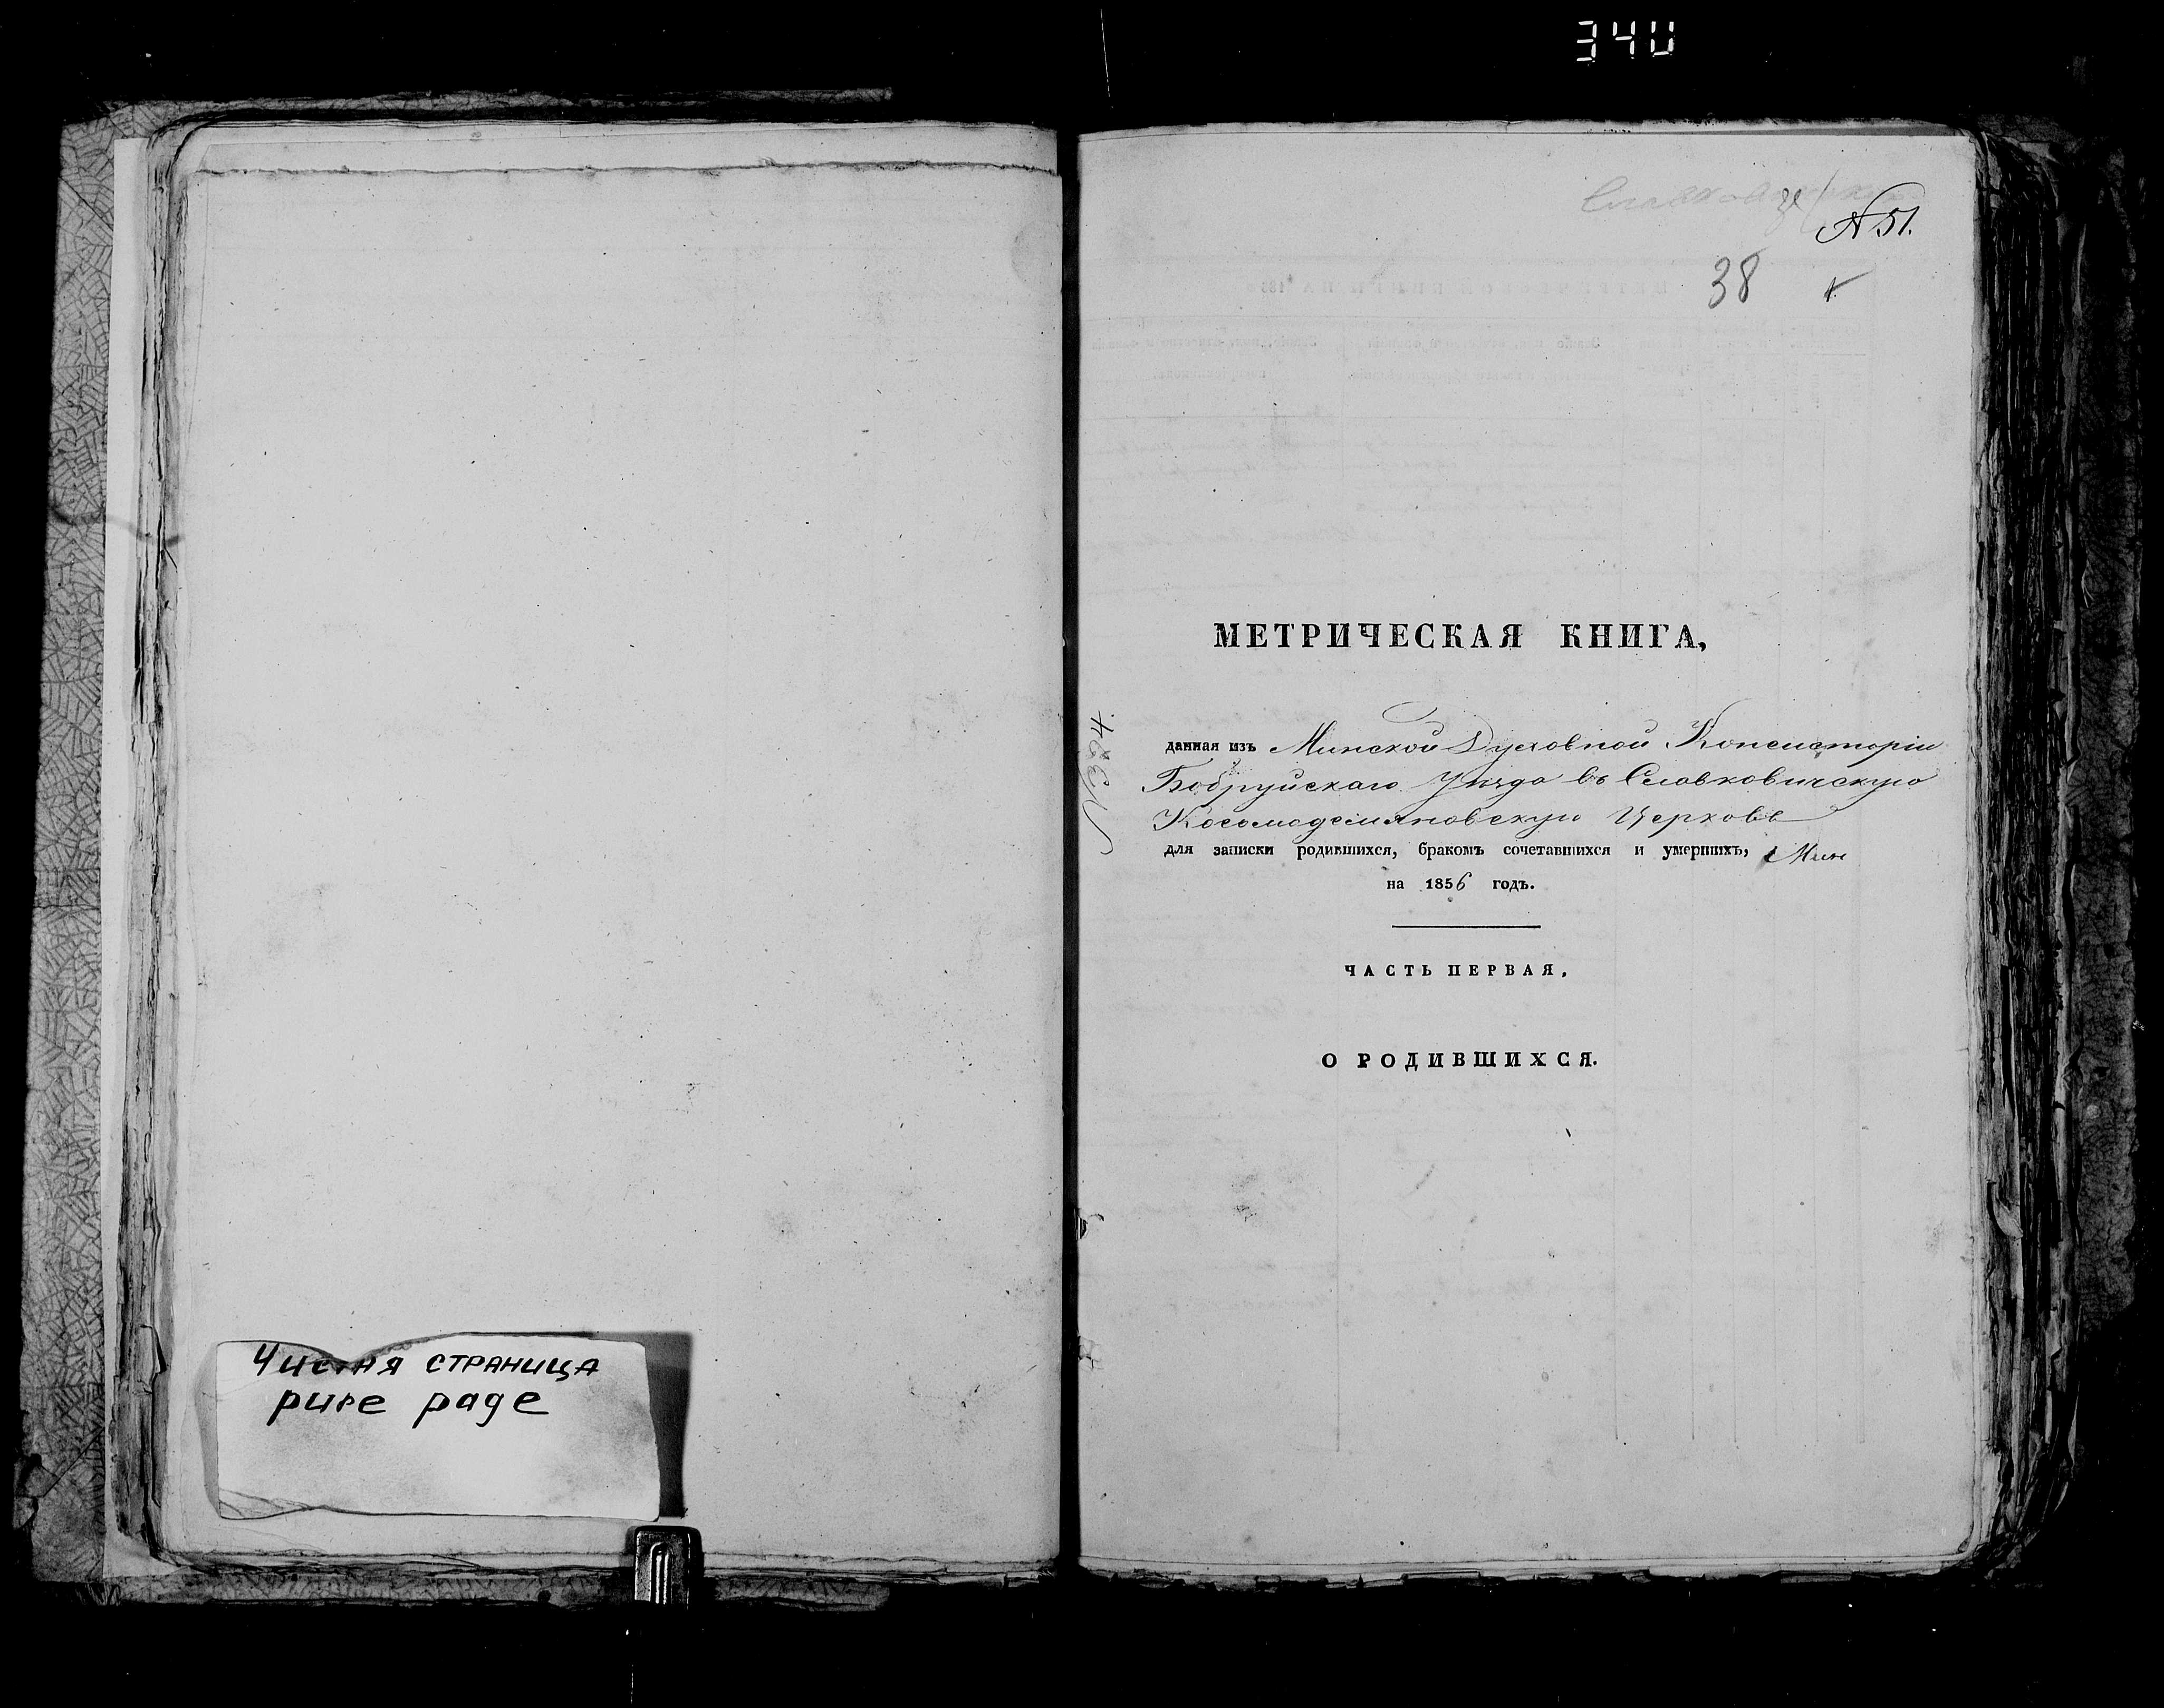 340
Чистая страница
pure page
N 51.
38
МЕТРИЧЕСКАЯ КНИГА,
данная изъ Минской Духовной Консисторіи
Бобруйскаго Уѣзда въ Славковичскую
Косомодемяновскую Церковь
для записки родившихся, бракомъ сочетавшихся и умершихъ,
на 1856 годъ.
ЧАСТЬ ПЕРВАЯ,
О РОДИВШИХСЯ.